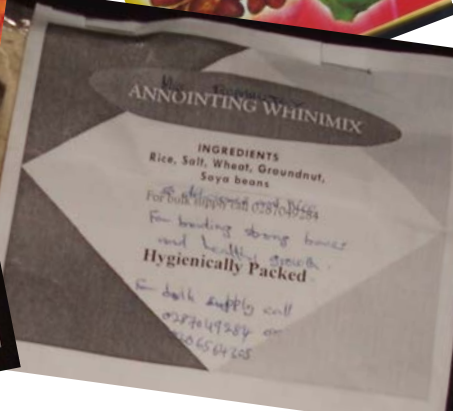 ANNOINTING WHINIMIX
INGREDIENTS
Rice, Salt, Wheat, Groundnut,
Soya beans
For bulk supply call 0287049284
For building strong bones
and healthy growth.
Hygienically Packed
For bulk supply call
0287049284 or